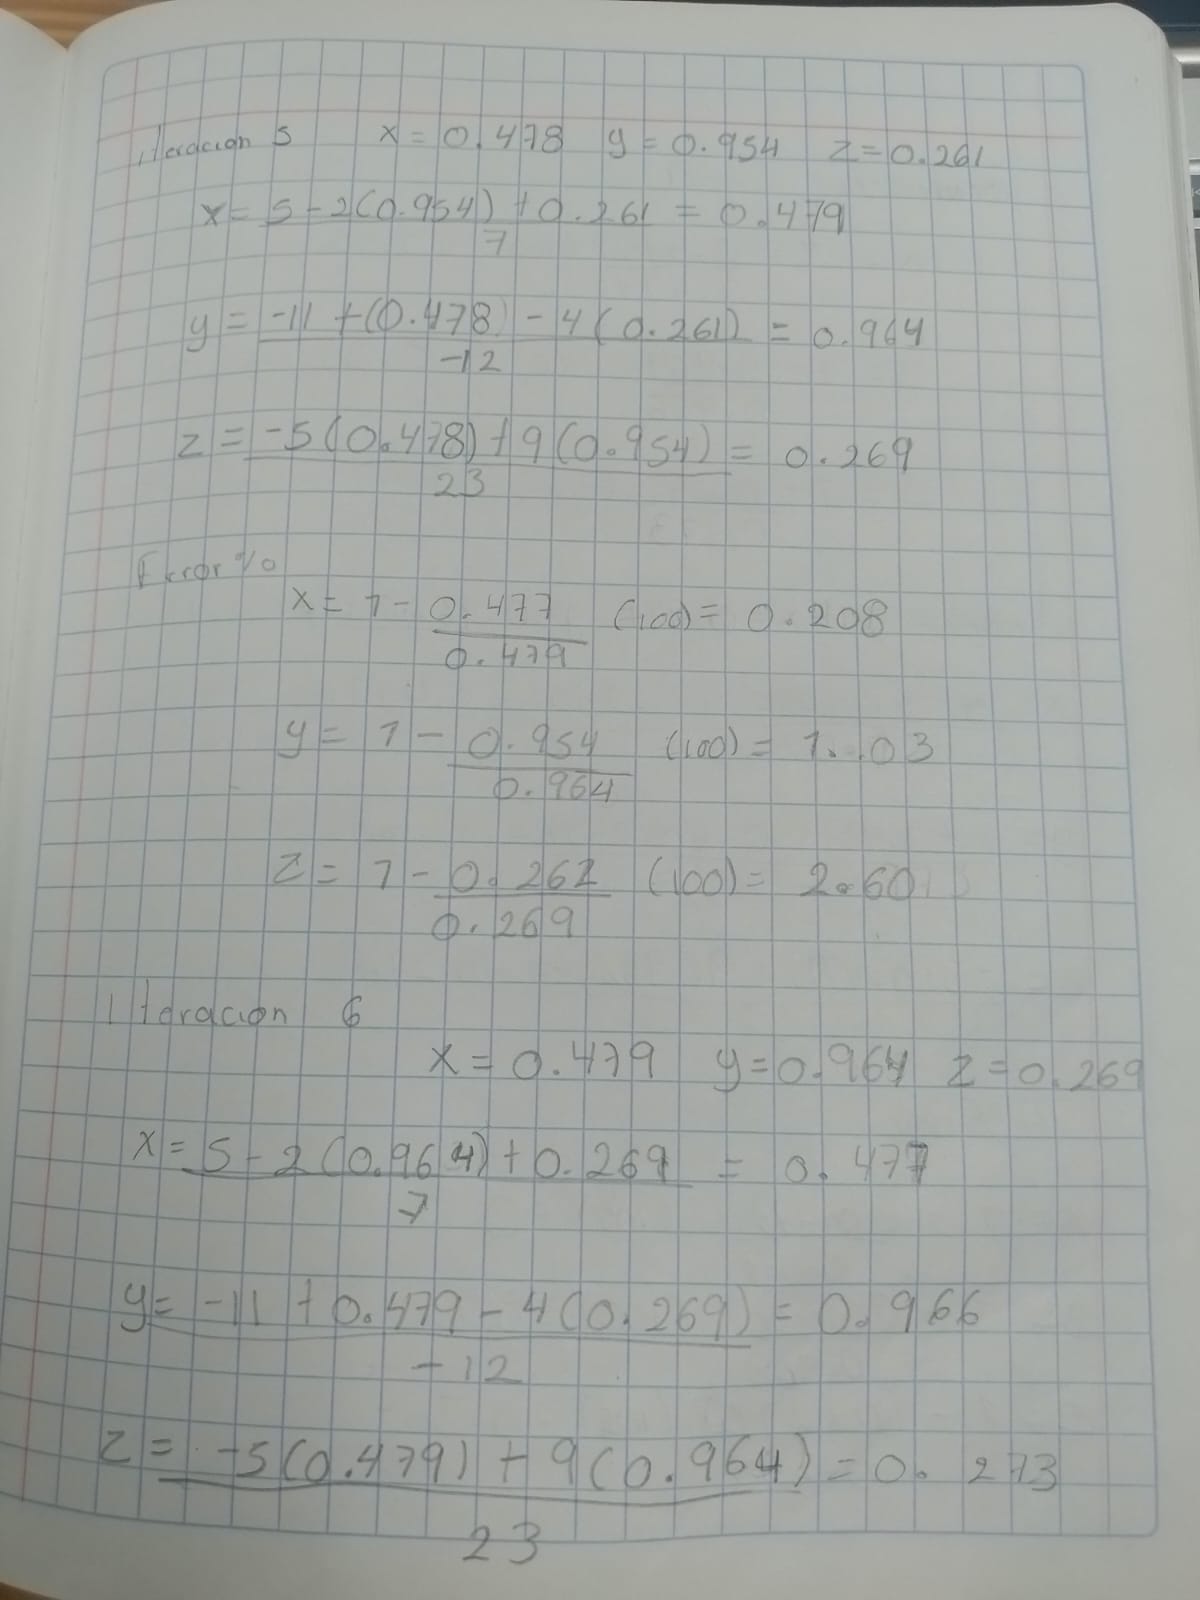 iteracion 5 x = 0.478 y = 0.954 z = 0.261
x = 5 - 2(0.954) + 0.261 = 0.479
7
y = -11 + (0.478) - 4(0.261) = 0.964
-12
z = -5(0.478) + 9(0.954) = 0.269
23
Error %
x = 1 - 0.477 (100) = 0.208
0.479
y = 1 - 0.954 (100) = 1.03
0.964
z = 1 - 0.262 (100) = 2.60
0.269
Iteracion 6
x = 0.479 y = 0.964 z = 0.269
x = 5 - 2(0.964) + 0.269 = 0.477
7
y = -11 + 0.479 - 4(0.269) = 0.966
-12
z = -5(0.479) + 9(0.964) = 0.273
23